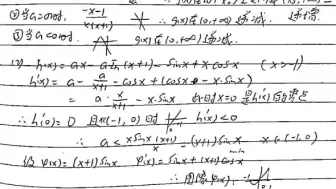 ②当a=0时, -x-1/x(x+1) g(x)在(0,+∞)递减.
③当a<0时, g(x)在(0,+∞)递减.
h(x)=ax-aln(x+1)-sinx+xcosx (x>-1)
h'(x)=a-a/x+1-cosx+(cosx-x·sinx)
=a·x/x+1-x·sinx 此时x=0是h'(x)的零点
∴h'(0)=0 且x∈(-1,0)时 h'(x)<0
∴a<xsinx(x+1)/x=(x+1)sinx x∈(-1,0)
设φ(x)=(x+1)sinx φ'(x)=sinx+(x+1)cosx